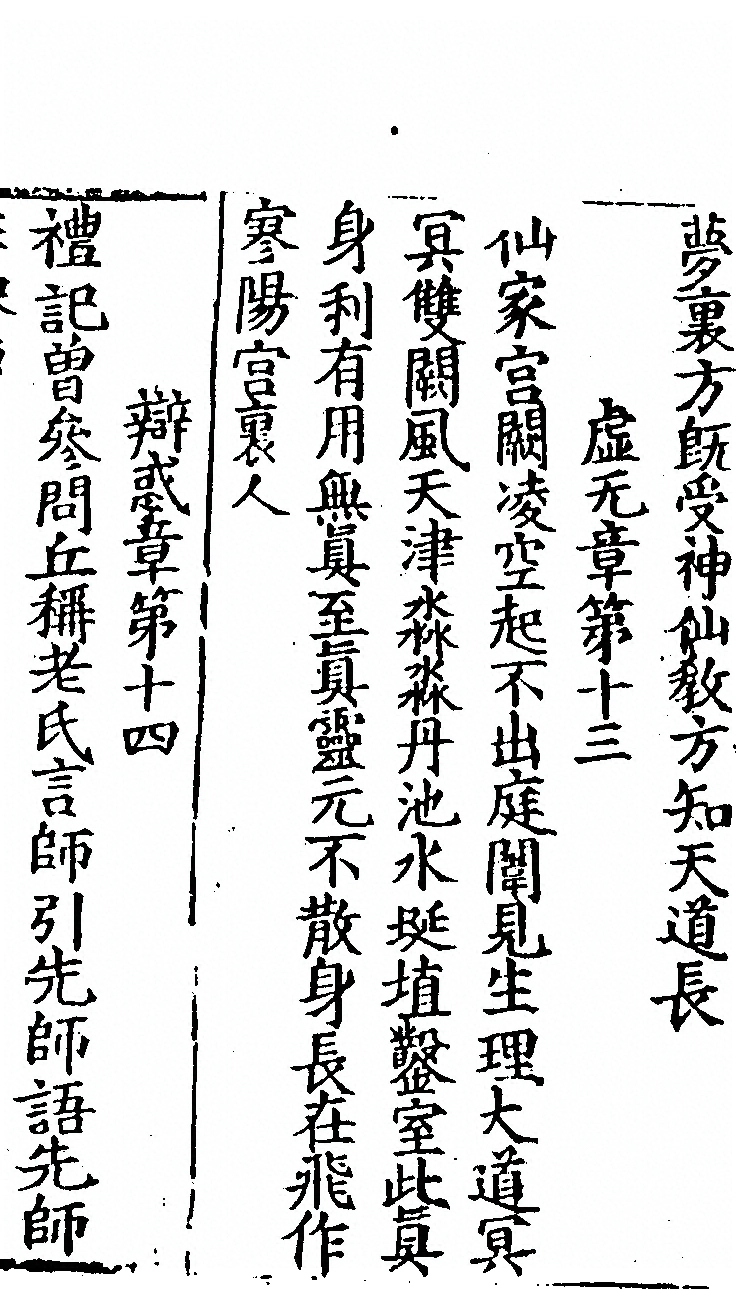 夢裏方旣受神仙敎方知天道長
虛无章第十三
仙家宮闕凌空起不出庭闈見生理大道冥
冥雙闕風天津淼淼丹池水埏埴鑿室此眞
身利有用無眞至眞靈元不散身長在飛作
寥陽宮裏人
辯惑章第十四
禮記曾參問丘稱老氏言師引先師語先師